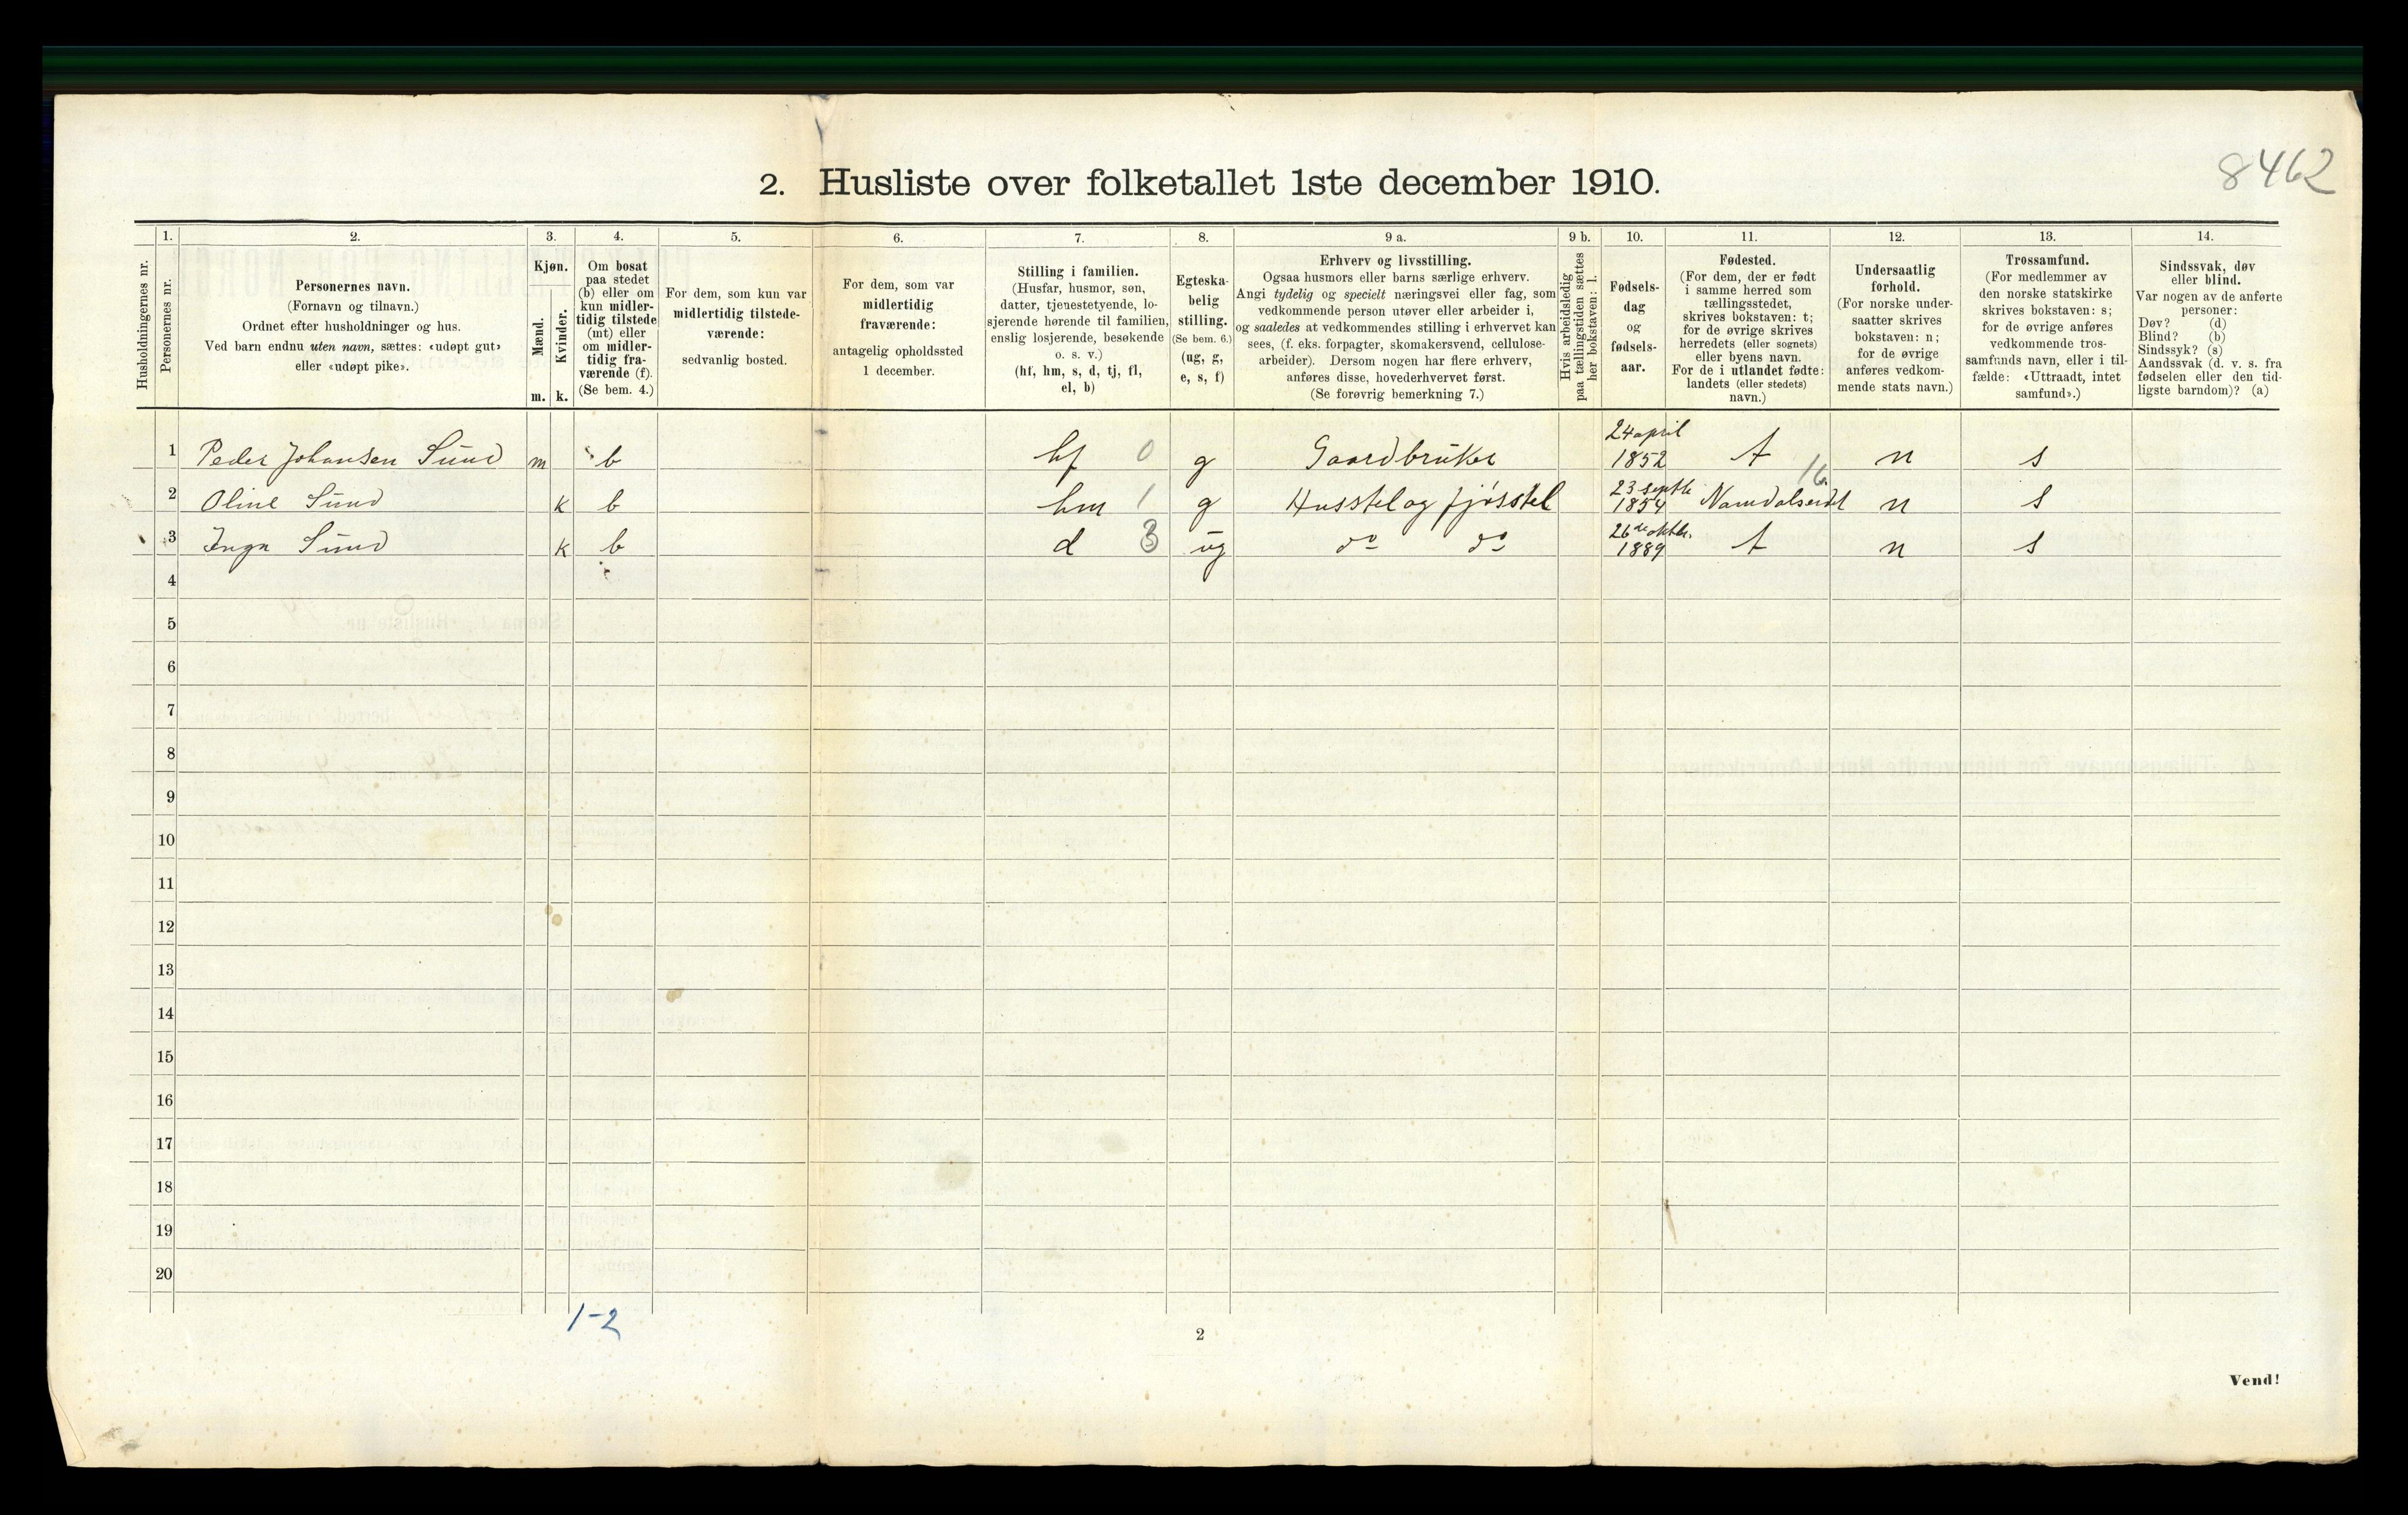 8462
2. Husliste over folketallet 1ste december 1910.
Husholdningernes nr.
1.
Personernes nr.
2.
Personernes navn.
(Fornavn og tilnavn.)
Ordnet efter husholdninger og hus.
Ved barn endnu uten navn, sættes: «udøpt gut»
eller «udøpt pike».
3.
Kjøn.
Mænd.
Kvinder.
m. k.
4.
Om bosat
paa stedet
(b) eller om
kun midler-
tidig tilstede
(mt) eller
om midler-
tidig fra-
værende (f).
(Se bem. 4.)
5.
For dem, som kun var
midlertidig tilstede-
værende:
sedvanlig bosted.
6.
For dem, som var
midlertidig
fraværende:
antagelig opholdssted
1 december.
7.
Stilling i familien.
(Husfar, husmor, søn,
datter, tjenestetyende, lo-
sjerende hørende til familien,
enslig losjerende, besøkende
o. s. v.)
(hf, hm, s, d, tj, fl,
el, b)
8.
Egteska-
belig
stilling.
(Se bem. 6.)
(ug, g,
e, s, f)
9 a.
Erhverv og livsstilling.
Ogsaa husmors eller barns særlige erhverv.
Angi tydelig og specielt næringsvei eller fag, som
vedkommende person utøver eller arbeider i,
og saaledes at vedkommendes stilling i erhvervet kan
sees, (f. eks. forpagter, skomakersvend, cellulose-
arbeider). Dersom nogen har flere erhverv,
anføres disse, hovederhvervet først.
(Se forøvrig bemerkning 7.)
9 b.
Hvis arbeidsledig
paa tællingstiden sættes
her bokstaven: l.
10.
Fødsels-
dag
og
fødsels-
aar.
11.
Fødested.
(For dem, der er født
i samme herred som
tællingsstedet,
skrives bokstaven: t;
for de øvrige skrives
herredets (eller sognets)
eller byens navn.
For de i utlandet fødte:
landets (eller stedets)
navn.)
12.
Undersaatlig
forhold.
(For norske under-
saatter skrives
bokstaven: n;
for de øvrige
anføres vedkom-
mende stats navn.)
13.
Trossamfund.
(For medlemmer av
den norske statskirke
skrives bokstaven: s;
for de øvrige anføres
vedkommende tros-
samfunds navn, eller i til-
fælde: «Uttraadt, intet
samfund».)
14.
Sindssvak, døv
eller blind.
Var nogen av de anførte
personer:
Døv? (d)
Blind? (b)
Sindssyk? (s)
Aandssvak (d. v. s. fra
fødselen eller den tid-
ligste barndom)? (a)
1 Peder Johansen Sund m b hf 0 g Gaardbruker 24 april 1852 t n s
2 Oline Sund k b hm 1 g Husstel og fjøsstel 23 septbr 1854 Namdalseidet 16 n s
3 Inga Sund k b d 3 ug do do 26de oktbr. 1889 t n s
4
5
6
7
8
9
10
11
12
13
14
15
16
17
18
19
20
1-2
2
Vend!